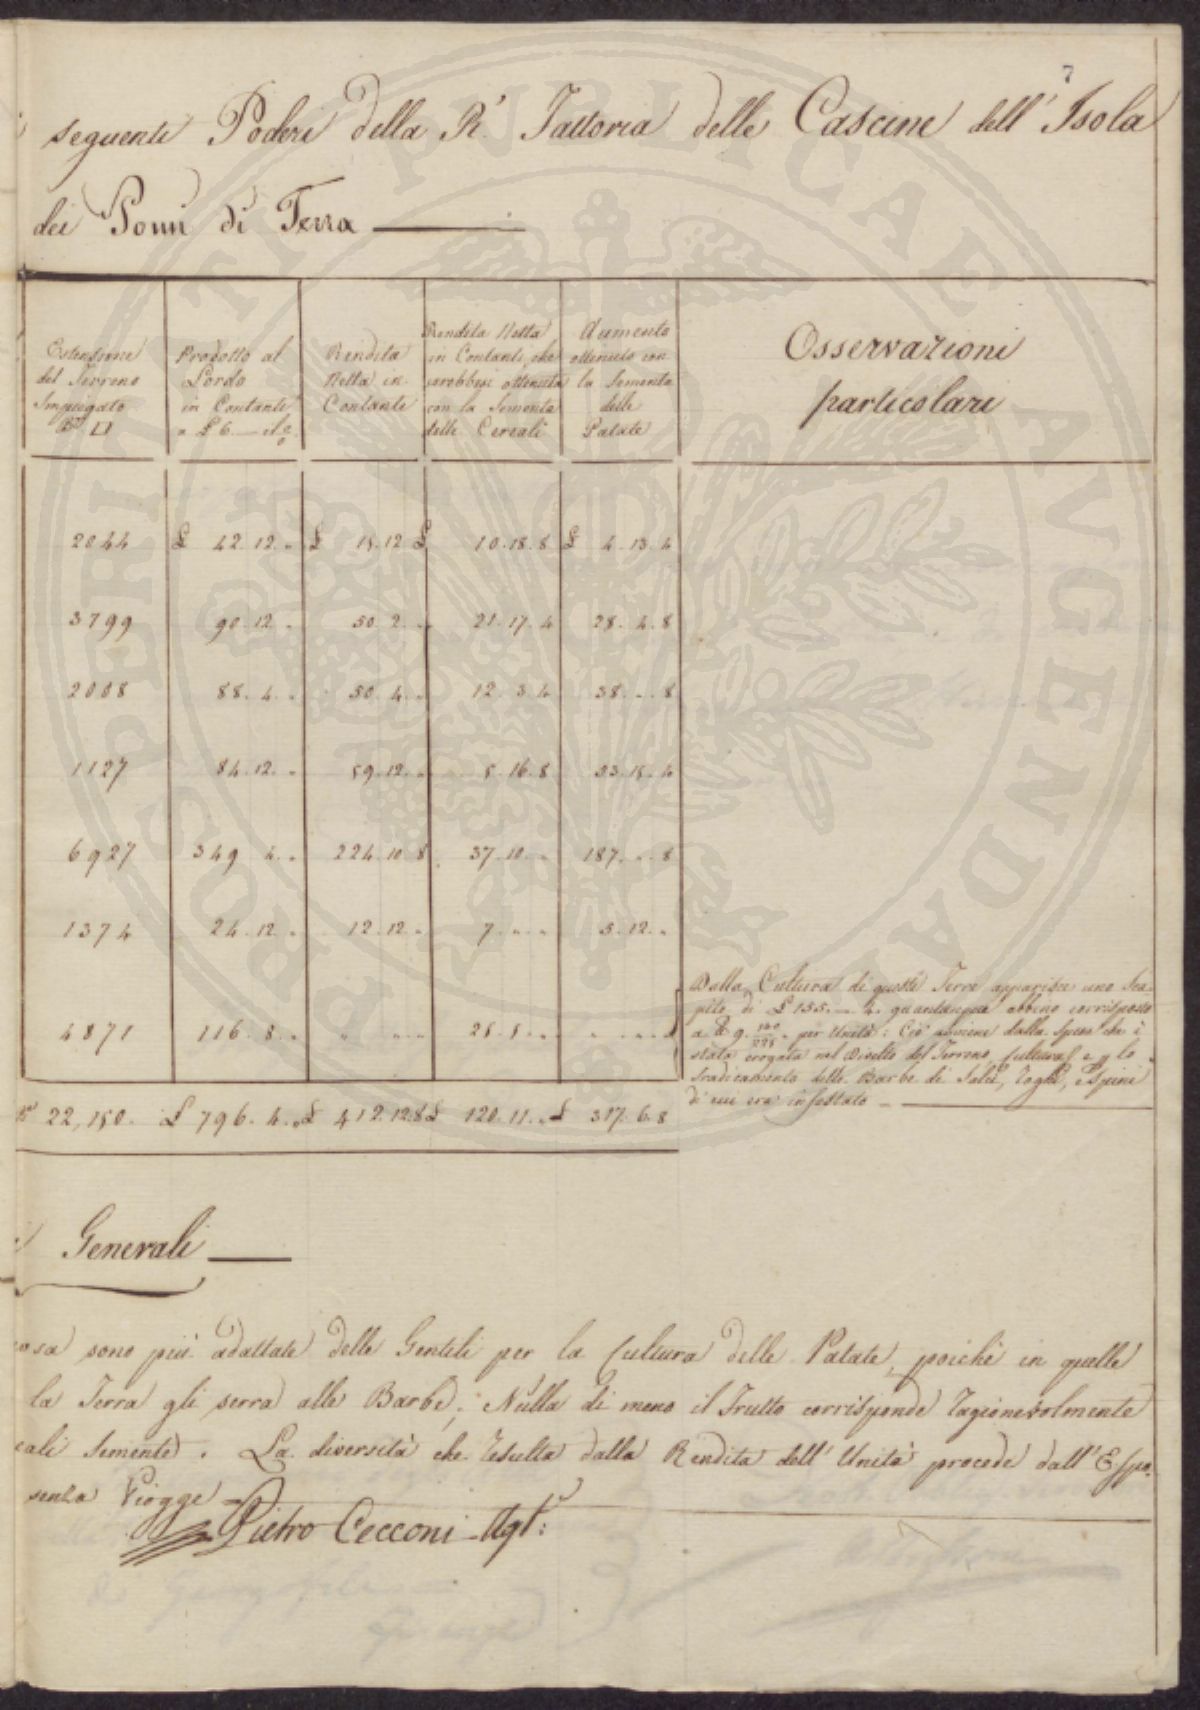 7
seguenti Poderi della R. Fattoria delle Cascine dell'Isola
dei Pomi di Terra
Estensione del Terreno Impiegato Bra □
Prodotto al Lordo in Contante a £ 6 — il
Rendita Netta in Contante
Rendita Netta in Contanti, che sarebbesi ottenuta con la Sementa delle Cereali
Aumento ottenuto con la Sementa delle Patate
Osservazioni particolari
2044 £ 42.12.„ £ 15.12 £ 10.18.8 £ 4.13.4
3799 90.12.„ 50.2.„ 21.17.4 28.4.8
2008 88.4.„ 50.4.„ 12.3.4 38.„.8
1127 84.12.„ 59.12.„ 5.16.8 53.15.4
6927 349.4.„ 224.10.8 37.10.„ 187.„.8
1374 24.12.„ 12.12.„ 7.„.„ 5.12.„
4871 116.8.„ „ „ „ 25.5.„ „ „ „
Dalla Cultura di questi Terre apparisce uno Sca-
pito di £ 155.—4. quantunque abbino corrisposto
a £ 9. per Unità: Ciò avviene dalla Spesa che è
stata erogata nel Divelto del Terreno, Cultura, e lo
Sradicamento delle Barbe di Salci, Roghi, e Spini
di cui era infestato —
Bra 22,150. £ 796.4.„ £ 412.12.8 £ 120.11.„ £ 317.6.8
Generali
osa sono più adattate delle Gentili per la Cultura delle Patate, poichè in quelle
la Terra gli serra alle Barbe; Nulla di meno il Frutto corrisponde ragionevolmente
cali Semente. La diversità che resulta dalla Rendita dell'Unità procede dall'Espo-
senza Piogge —
Pietro Cecconi Agte:
PROSPERITATI PUBLICAE AVGENDAE